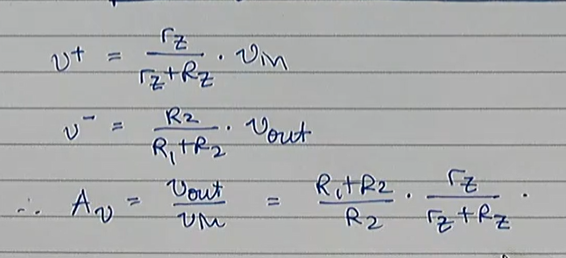 v⁺ = r_z / (r_z + R_z) · v_in
v⁻ = R2 / (R_1 + R_2) · v_out
∴ A_v = v_out / v_in = (R_1 + R2) / R2 · r_z / (r_z + R_z) .